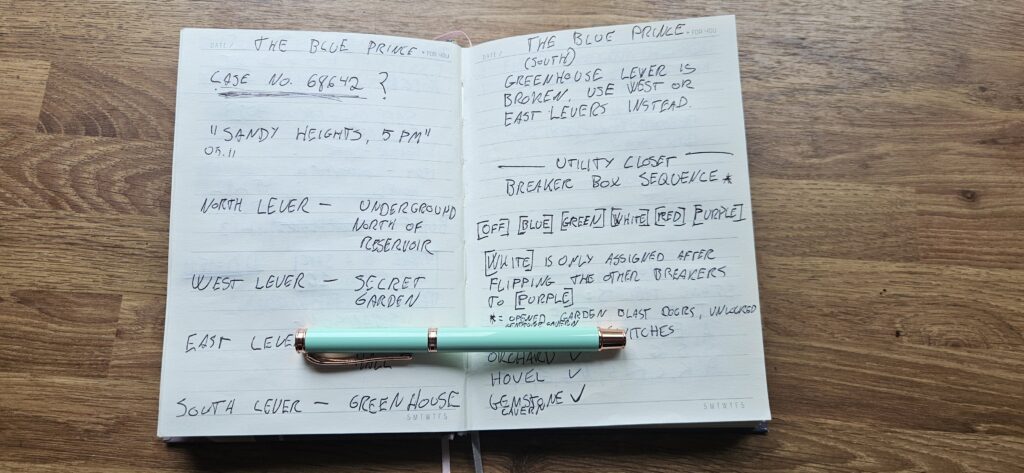 DATE / THE BLUE PRINCE • FOR YOU
CASE NO. 68642 ?
"SANDY HEIGHTS, 5 PM"
05.11
NORTH LEVER – UNDERGROUND
NORTH OF
RESERVOIR
WEST LEVER – SECRET
GARDEN
EAST LEVE
SOUTH LEVER – GREENHOUSE
S M T W T F S
DATE / THE BLUE PRINCE • FOR YOU
(SOUTH)
GREENHOUSE LEVER IS
BROKEN. USE WEST OR
EAST LEVERS INSTEAD.
UTILITY CLOSET
BREAKER BOX SEQUENCE *
[OFF] [BLUE] [GREEN] [WHITE] [RED] [PURPLE]
[WHITE] IS ONLY ASSIGNED AFTER
FLIPPING THE OTHER BREAKERS
TO [PURPLE]
* = OPENED GARDEN BLAST DOORS, UNLOCKED
GEMSTONE CAVERN
ORCHARD ✓
HOVEL ✓
GEMSTONE ✓
CAVERN
S M T W T F S